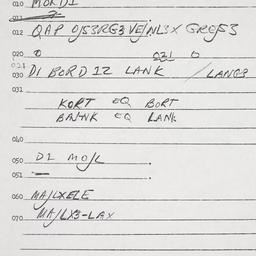 010 MORD1
011
012 QAP O/S3RG3 VE/NLSX GREJS3
020 O 021 O
021
030 D1 BORD 12 LANK / LANG3
031
KORT EQ BORT
BA/NK EQ LANK
040
050 D1 MO/L .
051 — .
060 MA/LXELE
070 MA/LX3-LAX